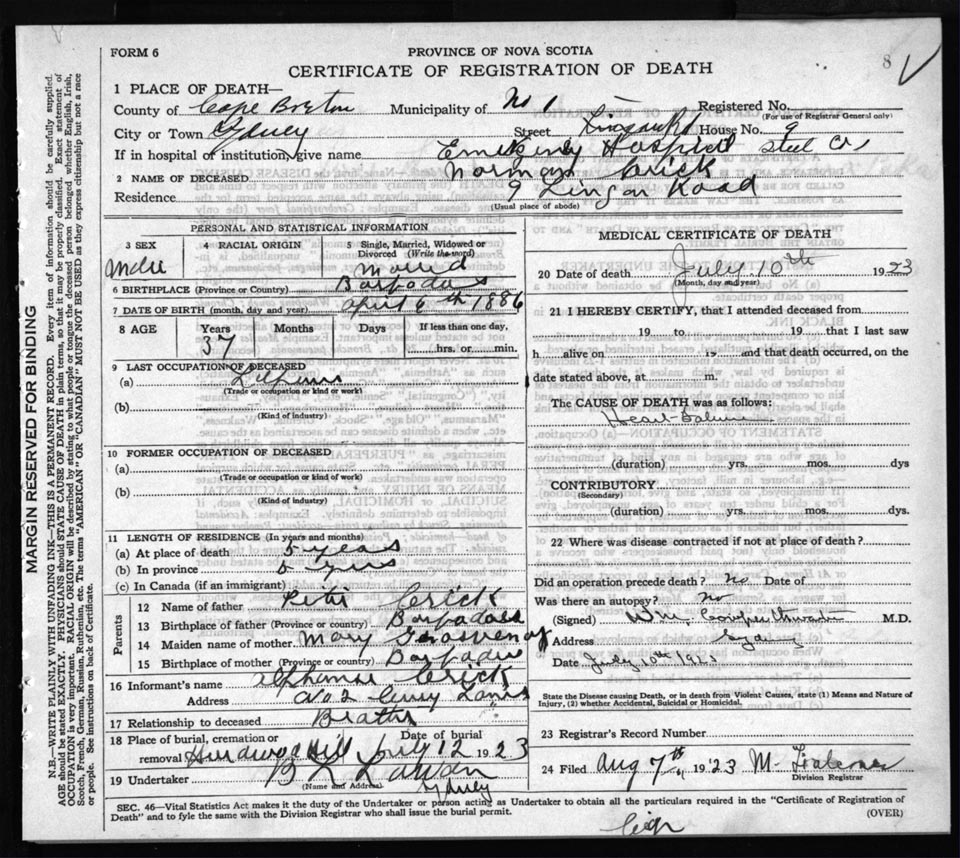 FORM 6
PROVINCE OF NOVA SCOTIA
8
CERTIFICATE OF REGISTRATION OF DEATH
1 PLACE OF DEATH—
County of Cape Breton Municipality of No 1 Registered No.
(For use of Registrar General only)
City or Town Sydney Street Lingan Rd House No. 9
If in hospital of institution, give name Emergency Hospital Steel Co,
2 NAME OF DECEASED Norman Crick
Residence 9 Lingan Road
(Usual place of abode)
PERSONAL AND STATISTICAL INFORMATION
3 SEX
Male
4 RACIAL ORIGIN
5 Single, Married, Widowed or Divorced (Write the word)
Married
6 BIRTHPLACE (Province or Country) Barbados
7 DATE OF BIRTH (month, day and year) April 6th 1886
8 AGE Years Months Days If less than one day,
37 hrs. or min.
9 LAST OCCUPATION OF DECEASED
(a)
(Trade or occupation or kind or work)
(b)
(Kind of industry)
10 FORMER OCCUPATION OF DECEASED
(a)
(Trade or occupation or kind of work)
(b)
(Kind of industry)
11 LENGTH OF RESIDENCE (In years and months)
(a) At place of death 5 years
(b) In province 5 yrs
(c) In Canada (if an immigrant)
Parents
12 Name of father Peter Crick
13 Birthplace of father (Province or country) Barbados
14 Maiden name of mother Mary Grosvenor
15 Birthplace of mother (Province or country) Barbados
16 Informant's name Alphonse Crick
Address No 2 Curry Lane
17 Relationship to deceased Brother
18 Place of burial, cremation or removal Hardwood Hill Date of burial July 12 1923
19 Undertaker
(Name and Address) Sydney
MEDICAL CERTIFICATE OF DEATH
20 Date of death July 10th 1923
(Month, day and year)
21 I HEREBY CERTIFY, that I attended deceased from
19 to 19 that I last saw
h alive on 19 and that death occurred, on the
date stated above, at m.
The CAUSE OF DEATH was as follows:
Heart Failure
(duration) yrs. mos. dys
CONTRIBUTORY
(Secondary)
(duration) yrs. mos. dys.
22 Where was disease contracted if not at place of death?
Did an operation precede death? no Date of
Was there an autopsy? no
(Signed) Wm. M.D.
Address Sydney
Date July 10th 1923
State the Disease causing Death, or in death from Violent Causes, state (1) Means and Nature of
Injury, (2) whether Accidental, Suicidal or Homicidal.
23 Registrar's Record Number
24 Filed Aug 7th 1923 M.
Division Registrar
SEC. 46—Vital Statistics Act makes it the duty of the Undertaker or person acting as Undertaker to obtain all the particulars required in the "Certificate of Registration of
Death" and to fyle the same with the Division Registrar who shall issue the burial permit.
(OVER)
MARGIN RESERVED FOR BINDING
N.B.—WRITE PLAINLY WITH UNFADING INK—THIS IS A PERMANENT RECORD. Every item of information should be carefully supplied.
AGE should be stated EXACTLY. PHYSICIANS should STATE CAUSE OF DEATH in plain terms, so that it may be properly classified. Exact statement of
OCCUPATION is very important. RACIAL ORIGIN will be described by stating to what people or tongue the deceased person belonged whether English, Irish,
Scotch, French, German, Russian, Ruthenian, etc. The terms "AMERICAN" OR "CANADIAN" MUST NOT BE USED as they express citizenship but not a race
or people. See instructions on back of Certificate.